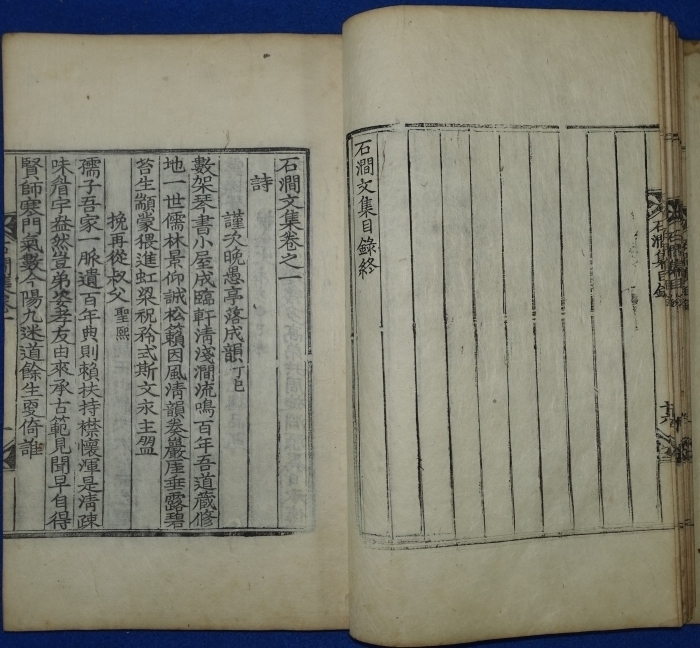 石澗文集目錄終
石澗集目錄
石澗文集卷之一
詩
謹次晩愚亭落成韻 丁巳
數架琴書小屋成臨軒清淺澗流鳴百年吾道藏修
地一世儒林景仰誠松籟因風清韻卷巖厓垂露碧
苔生顓蒙猥進虹梁祝矜式斯文永主盟
挽再從叔父 聖熙
孺子吾家一脈遺百年典則賴扶持襟懷渾是清疎
味眉宇盎然豈弟姿妻友由來承古範見聞早自得
賢師寒門氣數今陽九迷道餘生更倚誰